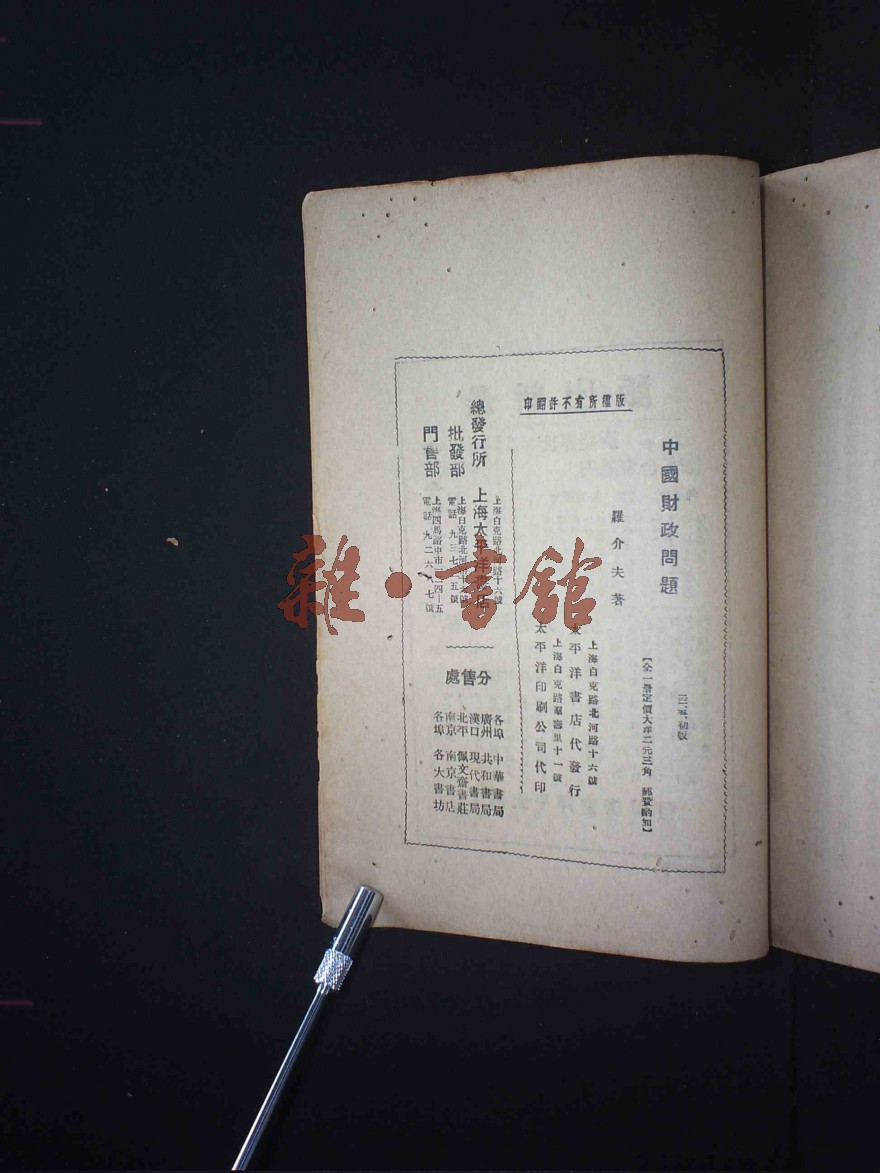 版權所有不許翻印
中國財政問題
羅介夫著
初版
【全一册定價大洋二元三角 郵費酌加】
上海白克路北河路十六號
太平洋書店代發行
上海白克路群壽里十一號
太平洋印刷公司代印
上海白克路北河路十六號
總發行所 上海太平洋書店
批發部
上海白克路北河路十六號
電話 九三七一五號
門售部
上海四馬路中市一二四—五
電話 九二六八七號
分售處
各埠 中華書局
廣州 共和書局
漢口 現代書局
北平 佩文齋書莊
南京 南京書店
各埠 各大書坊
雜·書館